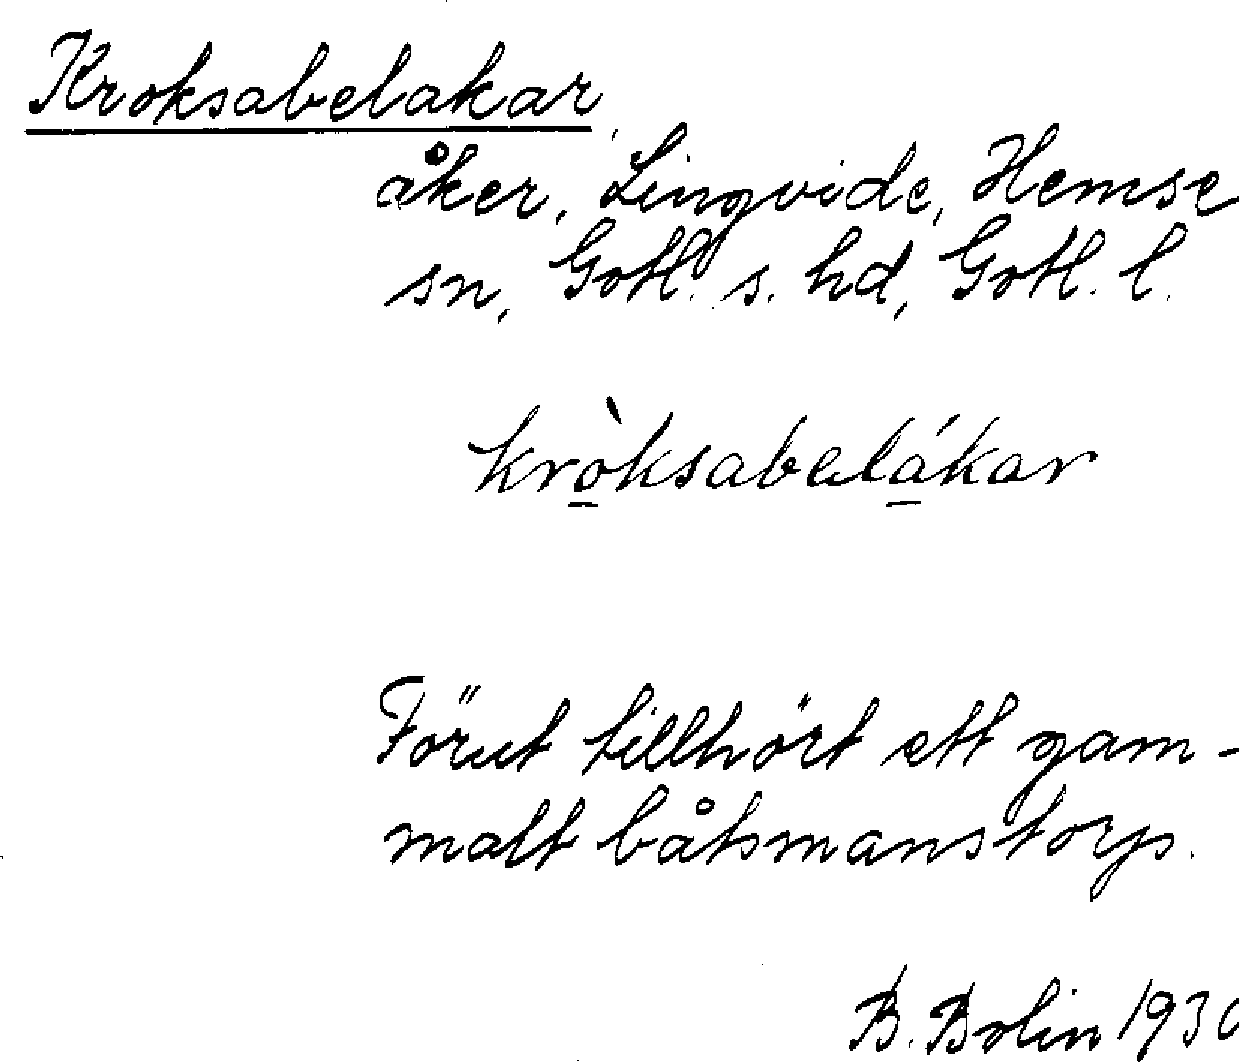 Kroksabelakar,
åker, Lingvide, Hemse
sn, Gotl. s. hd, Gotl. l.
kròksabelákar
Förut tillhört ett gam-
malt båtsmanstorp.
B. Bolin 1930